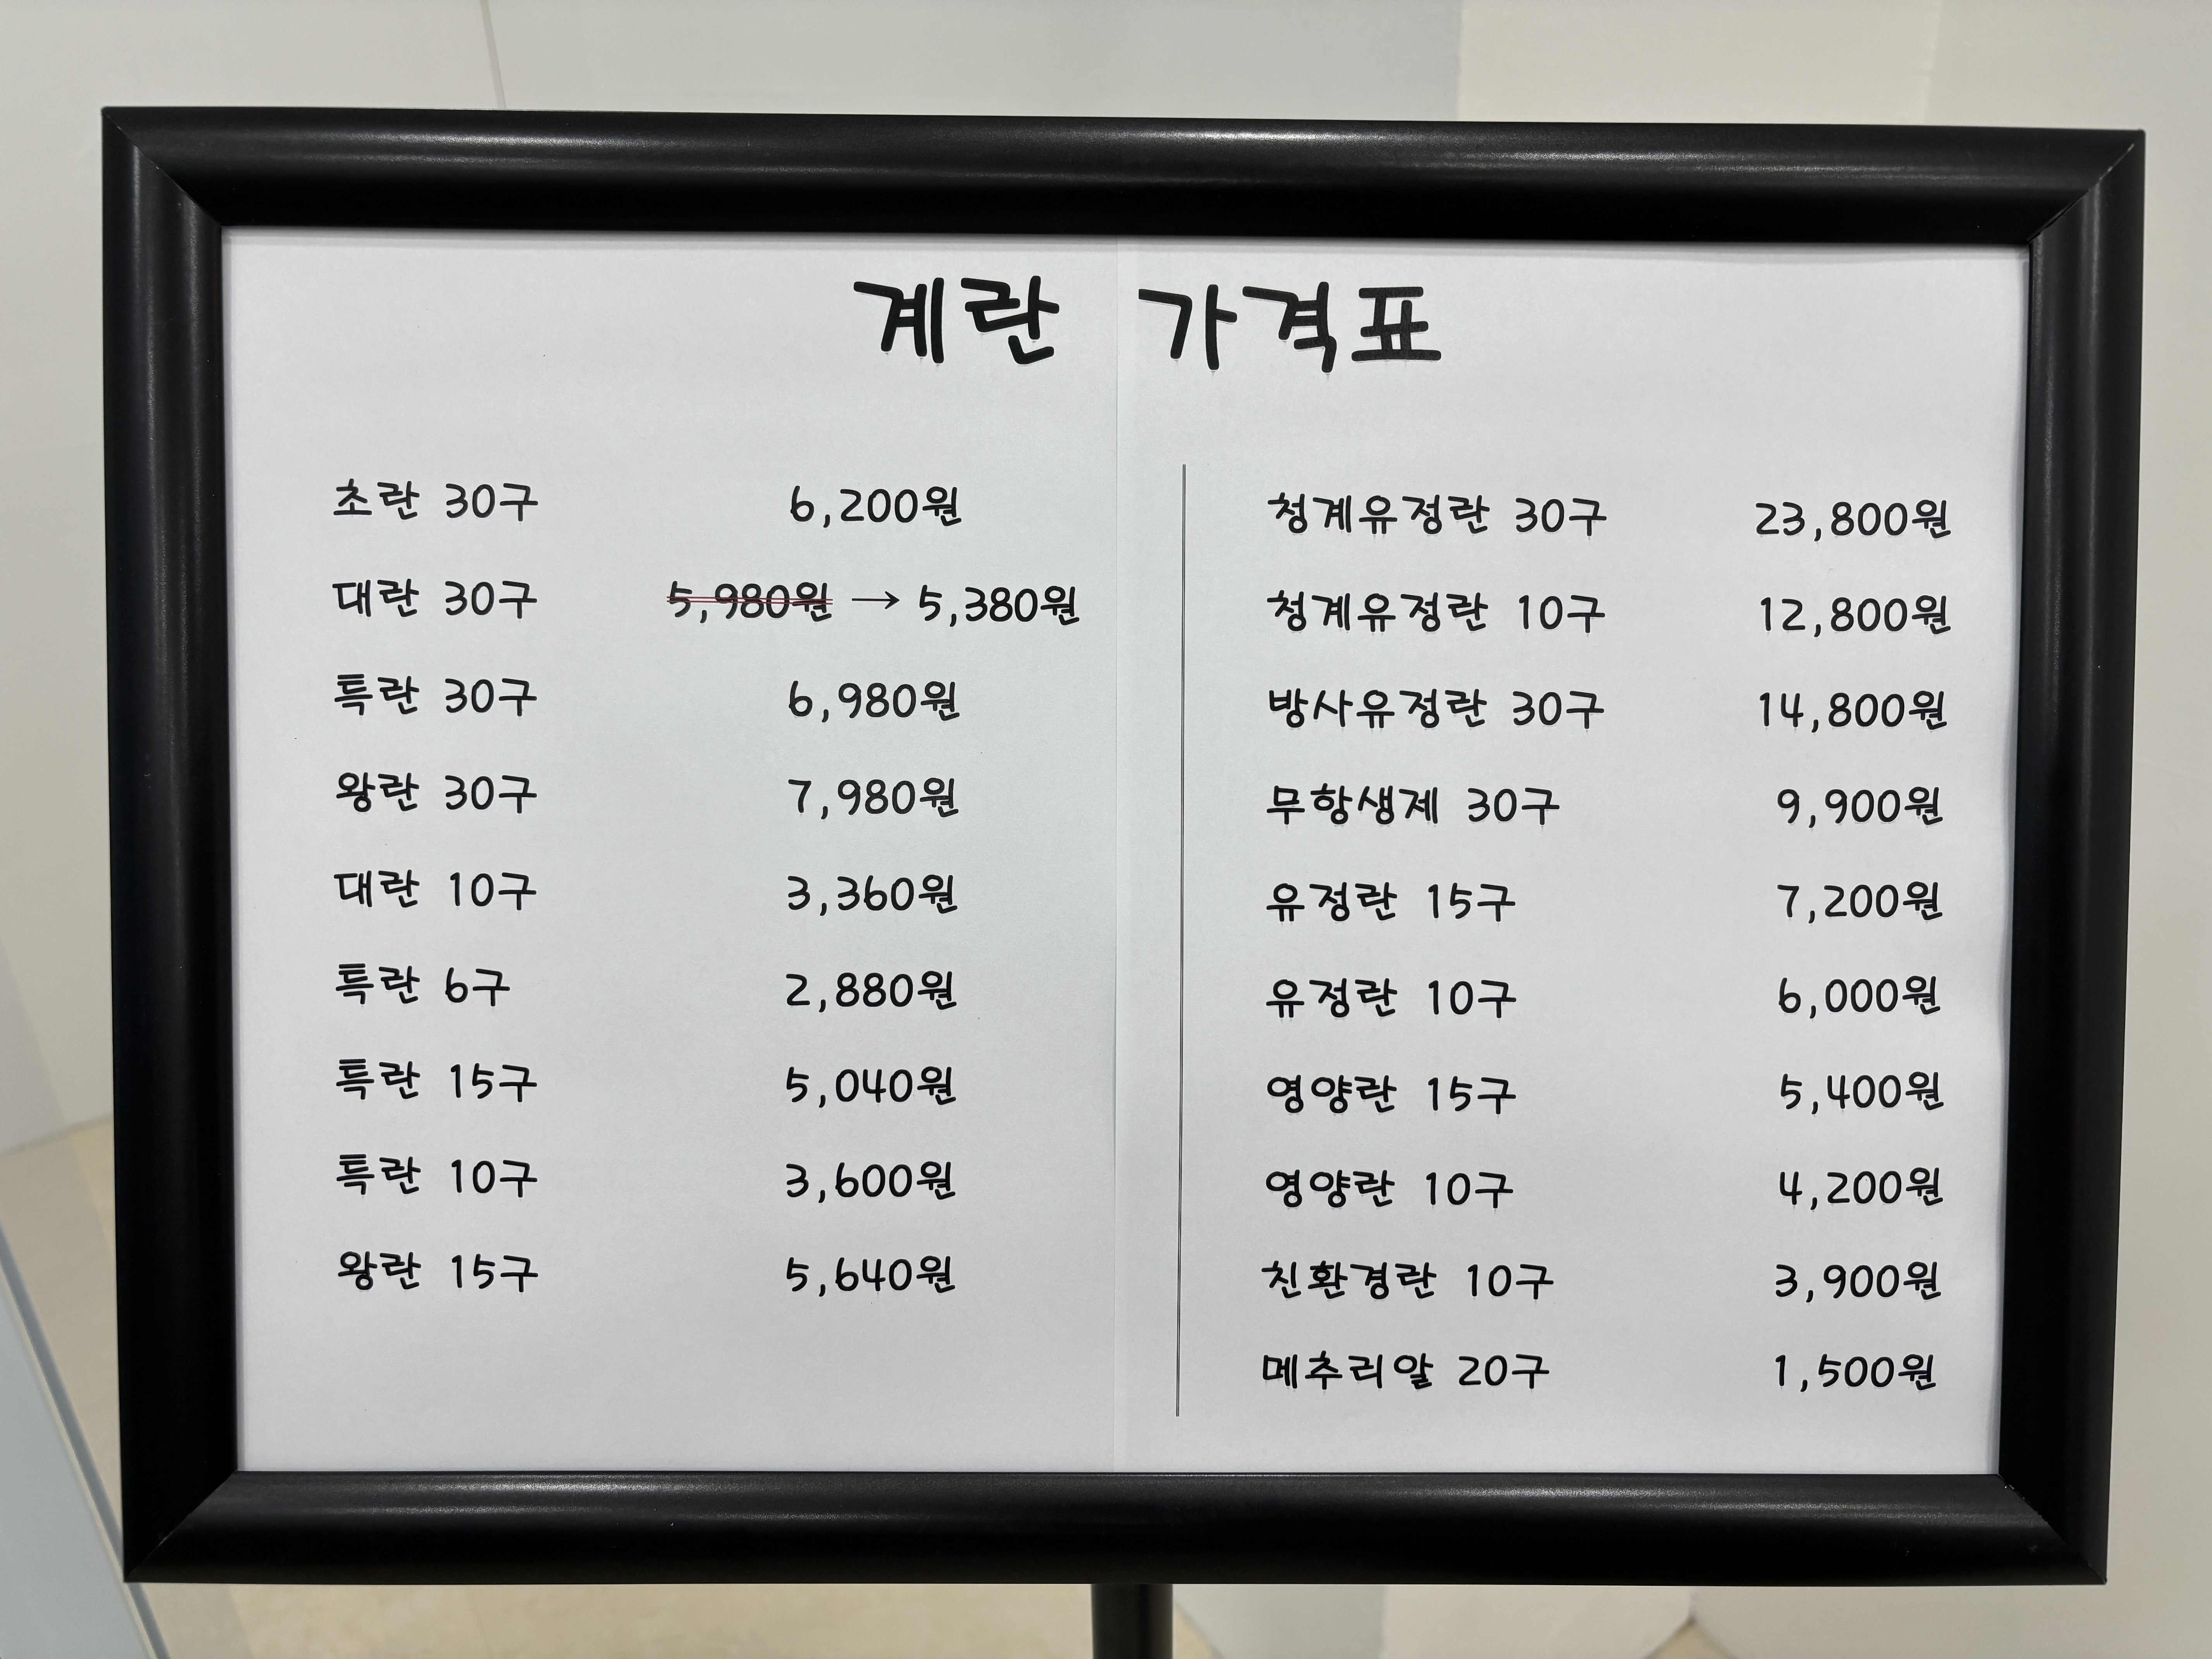 계란 가격표
초란 30구 6,200원
대란 30구 5,980원 → 5,380원
특란 30구 6,980원
왕란 30구 7,980원
대란 10구 3,360원
특란 6구 2,880원
특란 15구 5,040원
특란 10구 3,600원
왕란 15구 5,640원
청계유정란 30구 23,800원
청계유정란 10구 12,800원
방사유정란 30구 14,800원
무항생제 30구 9,900원
유정란 15구 7,200원
유정란 10구 6,000원
영양란 15구 5,400원
영양란 10구 4,200원
친환경란 10구 3,900원
메추리알 20구 1,500원